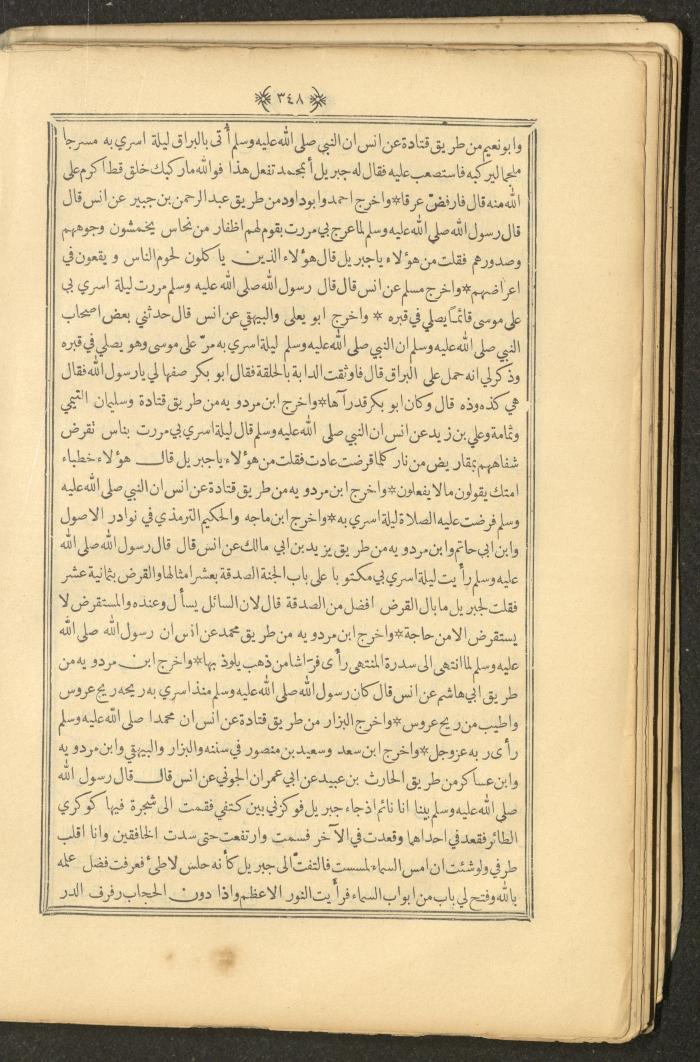 ٣٤٨
وابونعيم من طريق قتادة عن انس ان النبي صلى الله عليه وسلم أتى بالبراق ليلة اسري به مسرجا
ملجما ليركبه فاستصعب عليه فقال له جبريل أبمحمد تفعل هذا فوالله ماركبك خلق قط اكرم على
الله منه قال فارفضّ عرقا*واخرج احمد وابوداود من طريق عبدالرحمن بن جبير عن انس قال
قال رسول الله صلى الله عليه وسلم لماعرج بي مررت بقوم لهم اظفار من نحاس يخمشون وجوههم
وصدورهم فقلت من هؤلاء ياجبريل قال هؤلاء الذين ياكلون لحوم الناس ويقعون في
اعراضهم*واخرج مسلم عن انس قال قال رسول الله صلى الله عليه وسلم مررت ليلة اسري بي
على موسى قائمًا يصلي في قبره * واخرج ابو يعلى والبيهقي عن انس قال حدثني بعض اصحاب
النبي صلى الله عليه وسلم ان النبي صلى الله عليه وسلم ليلة اسري به مرّ على موسى وهو يصلي في قبره
وذكرلي انه حمل على البراق قال فاوثقت الدابة بالحلقة فقال ابو بكر صفهالي يارسول الله فقال
هي كذه وذه قال وكان ابو بكر قدرآها*واخرج ابن مردويه من طريق قتادة وسليمان التيمي
وثمامة وعلي بن زيد عن انس ان النبي صلى الله عليه وسلم قال ليلة اسري بي مررت بناس تقرض
شفاههم بمقاريض من نار كلما قرضت عادت فقلت من هؤلاء ياجبريل قال هؤلاء خطباء
امتك يقولون مالايفعلون*واخرج ابن مردويه من طريق قتادة عن انس ان النبي صلى الله عليه
وسلم فرضت عليه الصلاة ليلة اسري به*واخرج ابن ماجه والحكيم الترمذي في نوادر الاصول
وابن ابي حاتم وابن مردويه من طريق يزيد بن ابي مالك عن انس قال قال رسول الله صلى الله
عليه وسلم رأيت ليلة اسري بي مكتوبا على باب الجنة الصدقة بعشر امثالها والقرض بثمانية عشر
فقلت لجبريل مابال القرض افضل من الصدقة قال لان السائل يسأل وعنده والمستقرض لا
يستقرض الامن حاجة*واخرج ابن مردويه من طريق محمد عن انس ان رسول الله صلى الله
عليه وسلم لما انتهى الى سدرة المنتهى رأى فراشا من ذهب يلوذ بها*واخرج ابن مردويه من
طريق ابي هاشم عن انس قال كان رسول الله صلى الله عليه وسلم منذ اسري به ريحه ريح عروس
واطيب من ريح عروس*واخرج البزار من طريق قتادة عن انس ان محمدا صلى الله عليه وسلم
رأى ربه عزوجل*واخرج ابن سعد وسعيد بن منصور في سننه والبزار والبيهقي وابن مردويه
وابن عساكر من طريق الحارث بن عبيد عن ابي عمران الجوني عن انس قال قال رسول الله
صلى الله عليه وسلم بينا انا نائم اذجاء جبريل فوكزني بين كتفي فقمت الى شجرة فيها كوكري
الطائر فقعد في احداهما وقعدت في الآخر فسمت وارتفعت حتى سدت الخافقين وانا اقلب
طرفي ولوشئت ان امس السماء لمسست فالتفتّ الى جبريل كأنه حلس لاطئ فعرفت فضل علمه
بالله وفتح لي باب من ابواب السماء فرأيت النور الاعظم واذا دون الحجاب رفرف الدر